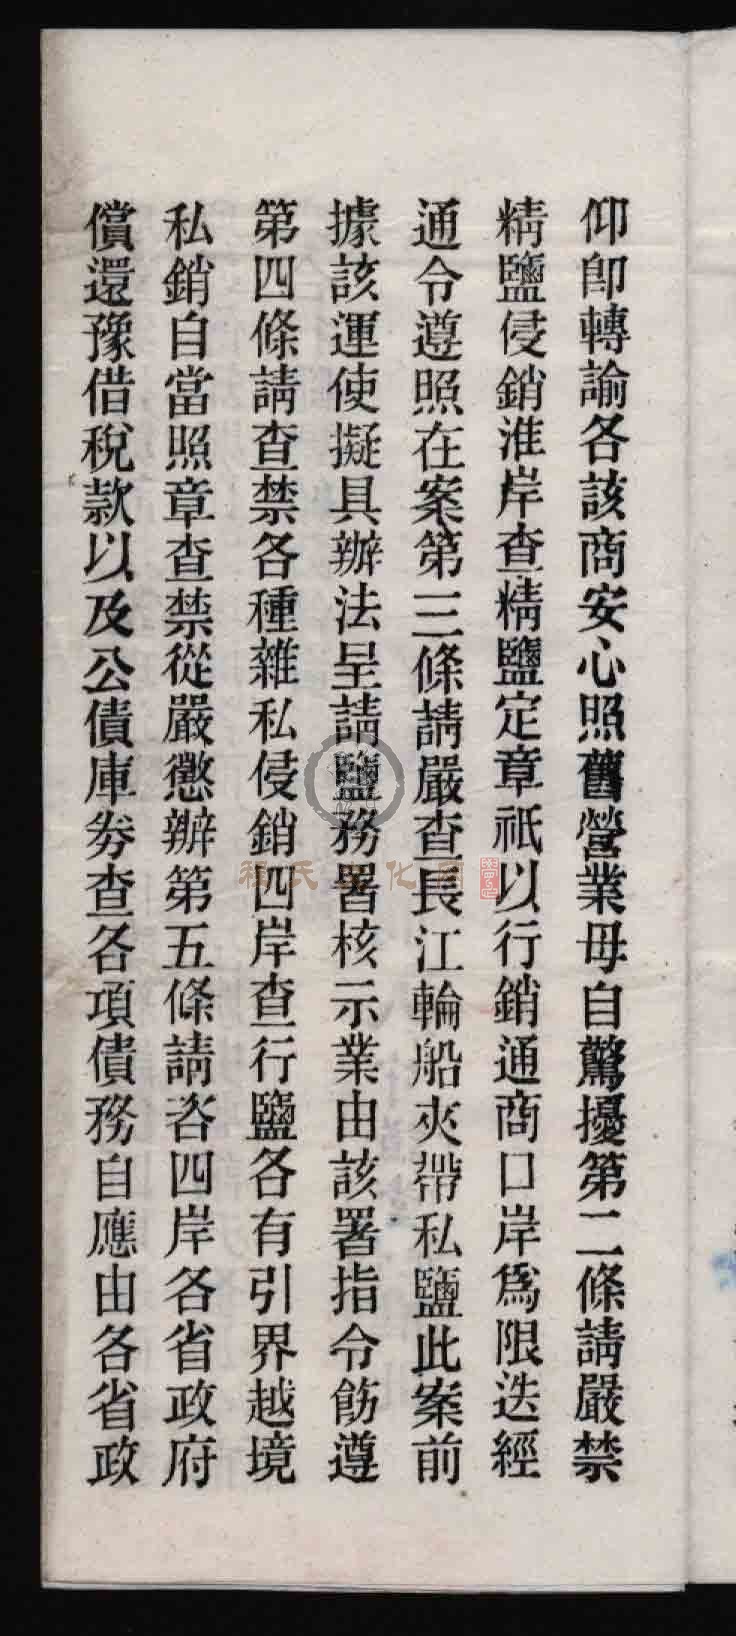 仰卽轉諭各該商安心照舊營業毋自驚擾第二條請嚴禁
精鹽侵銷淮岸查精鹽定章祇以行銷通商口岸爲限迭經
通令遵照在案第三條請嚴查長江輪船夾帶私鹽此案前
據該運使擬具辦法呈請鹽務署核示業由該署指令飭遵
第四條請查禁各種雜私侵銷四岸查行鹽各有引界越境
私銷自當照章查禁從嚴懲辦第五條請咨四岸各省政府
償還豫借稅款以及公債庫券查各項債務自應由各省政
程氏文化网